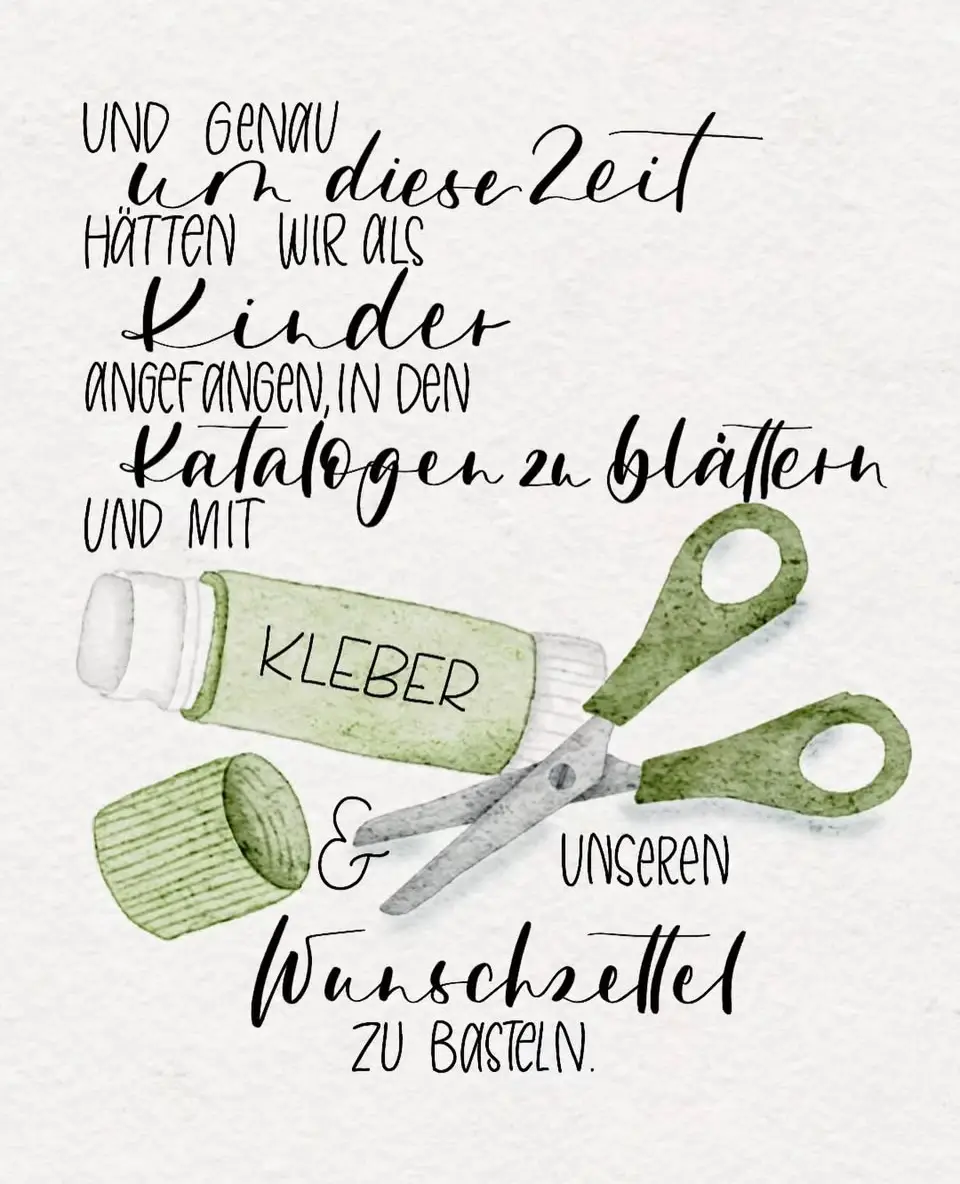 UND GENAU
um diese Zeit
HÄTTEN WIR ALS
Kinder
ANGEFANGEN, IN DEN
Katalogen zu blättern
UND MIT
KLEBER
& UNSEREN
Wunschzettel
ZU BASTELN.